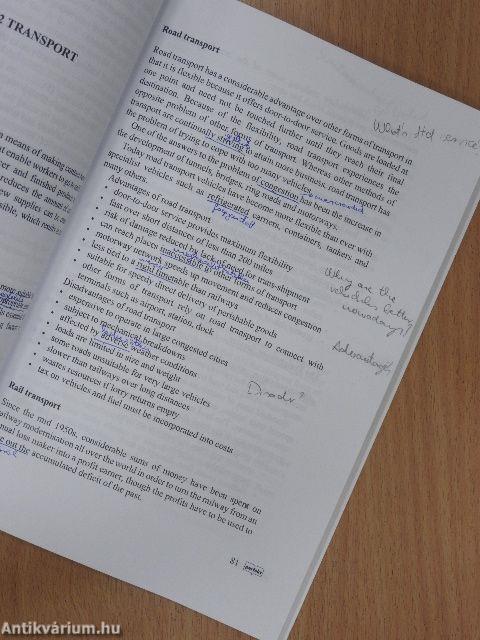 2 TRANSPORT
Road transport
Road transport has a considerable advantage over other forms of transport in
that it is flexible because it offers door-to-door service. Goods are loaded at
one point and need not be touched further, until they reach their final
destination. Because of the flexibility, road transport experiences the
opposite problem of other forms of transport. Whereas other methods of
transport are continually striving to attain more business, road transport has
the problem of trying to cope with too many vehicles.
One of the answers to the problem of congestion has been the increase in
the development of tunnels, bridges, ring roads and motorways.
Today road transport vehicles have become more flexible than ever with
specialist vehicles such as refrigerated carriers, containers, tankers and
many others.
Advantages of road transport
• door-to-door service provides maximum flexibility
• fast over short distances of less than 200 miles
• risk of damage reduced by lack of need for trans-shipment
• can reach places unaccessible to other forms of transport
• motorway network speeds up movement and reduces congestion
• less need to a rigid timetable than railways
• suitable for speedy direct delivery of perishable goods
• other forms of transport rely on road transport to connect with
terminals such as airport, station, dock
Disadvantages of road transport
• expensive to operate in large congested cities
• subject to mechanical breakdowns
• affected by adverse weather conditions
• loads are limited in size and weight
• some roads unsuitable for very large vehicles
• slower than railways over long distances
• wastes resources if lorry returns empty
• tax on vehicles and fuel must be incorporated into costs
Rail transport
Since the mid 1950s, considerable sums of money have been spent on
railway modernisation all over the world in order to turn the railway from an
annual loss maker into a profit earner, though the profits have to be used to
out the accumulated deficit of the past.
81
Why are the
vehicles better
nowadays?
Disadv?
Antikvárium.hu